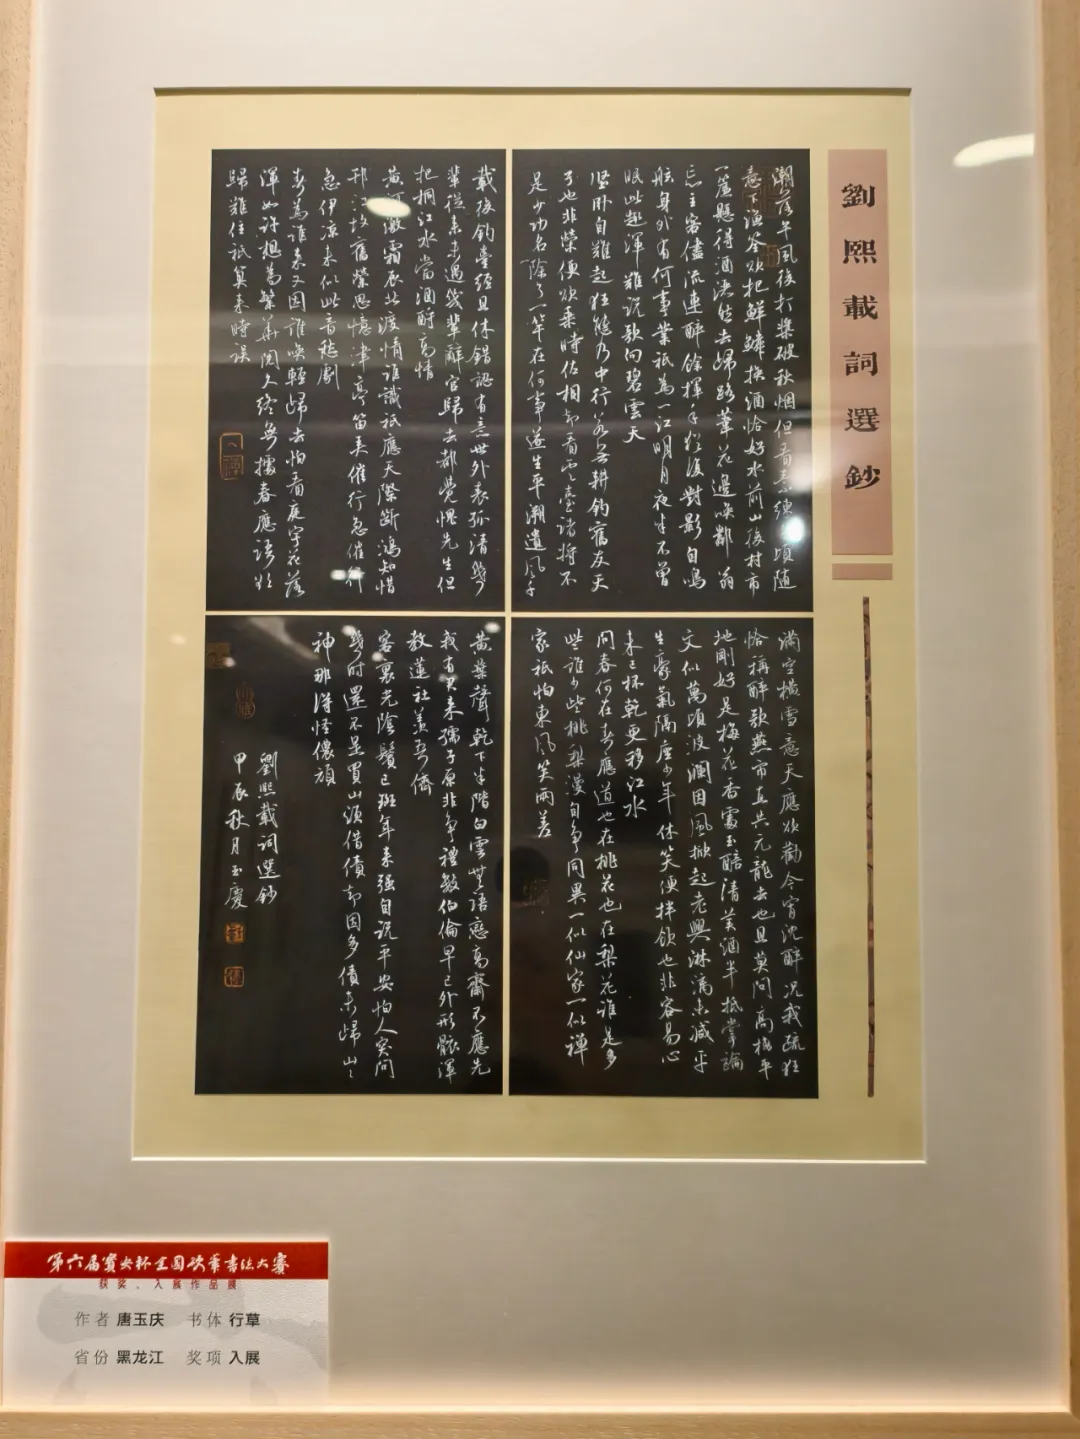 劉熙載詞選鈔
潮落半風後打槳破秋烟但看素練頃隨
意下漁筌欲把鮮鱗換酒恰好水前山後村市
一簾懸得酒浩然去歸路葦花邊喚鄰翁
忘主客儘流連醉餘揮手猶復對影自鳴
舷身外有何事業祇為一江明月夜半不曾
眠此趣渾難說歌向碧雲天
堅卧自難起狂態乃中行若無耕釣舊友天
子也非榮便欲乘時佐相却看雲臺諸將不
是少功名除了一竿在何事遂生平溯遺風千
載後釣臺經且休錯認有意世外表孤清幾
輩從來未遇幾輩辭官歸去都覺愧先生但
把桐江水當酒酹高情
黃河激霜辰北渡情誰識祇應天際斷鴻知惜
邗江故舊縈思憶津亭笛美催行急催行
急伊涼未似此音愁劇
春為誰來又因誰喚輕歸去怕看庭宇花落
渾如許想為繁華閱久終無據春應語於
歸難住祇算來時誤
滿空橫雪意天應欲勸今宵沈醉况我疏狂
恰稱醉歌燕市直共元龍去也且莫問高樓平
地剛好是梅花香處玉醅清美酒半抵掌論
文似萬頃波瀾因風掀起老興淋漓未減平
生豪氣隔座少年休笑便拌飲也非容易心
未已杯乾更移江水
問春何在春應道也在桃花也在梨花誰是多
些誰少些桃梨漫自爭同異一似仙家一似禪
家祇怕東風笑兩差
黃葉聲乾下半階白雲無語戀高齋不應先
我有君來孺子原非爭禮數伯倫早已外形骸渾
教蓮社羨吾儕
客裏光陰鬢已斑年來強自説平安怕人突問
幾時還不是買山須借債却因多債未歸山山
神那得怪儂頑
劉熙載詞選鈔
甲辰秋月玉慶
第六届寶安杯全国硬筆書法大賽
获奖、入展作品展
作者 唐玉庆 书体 行草
省份 黑龙江 奖项 入展